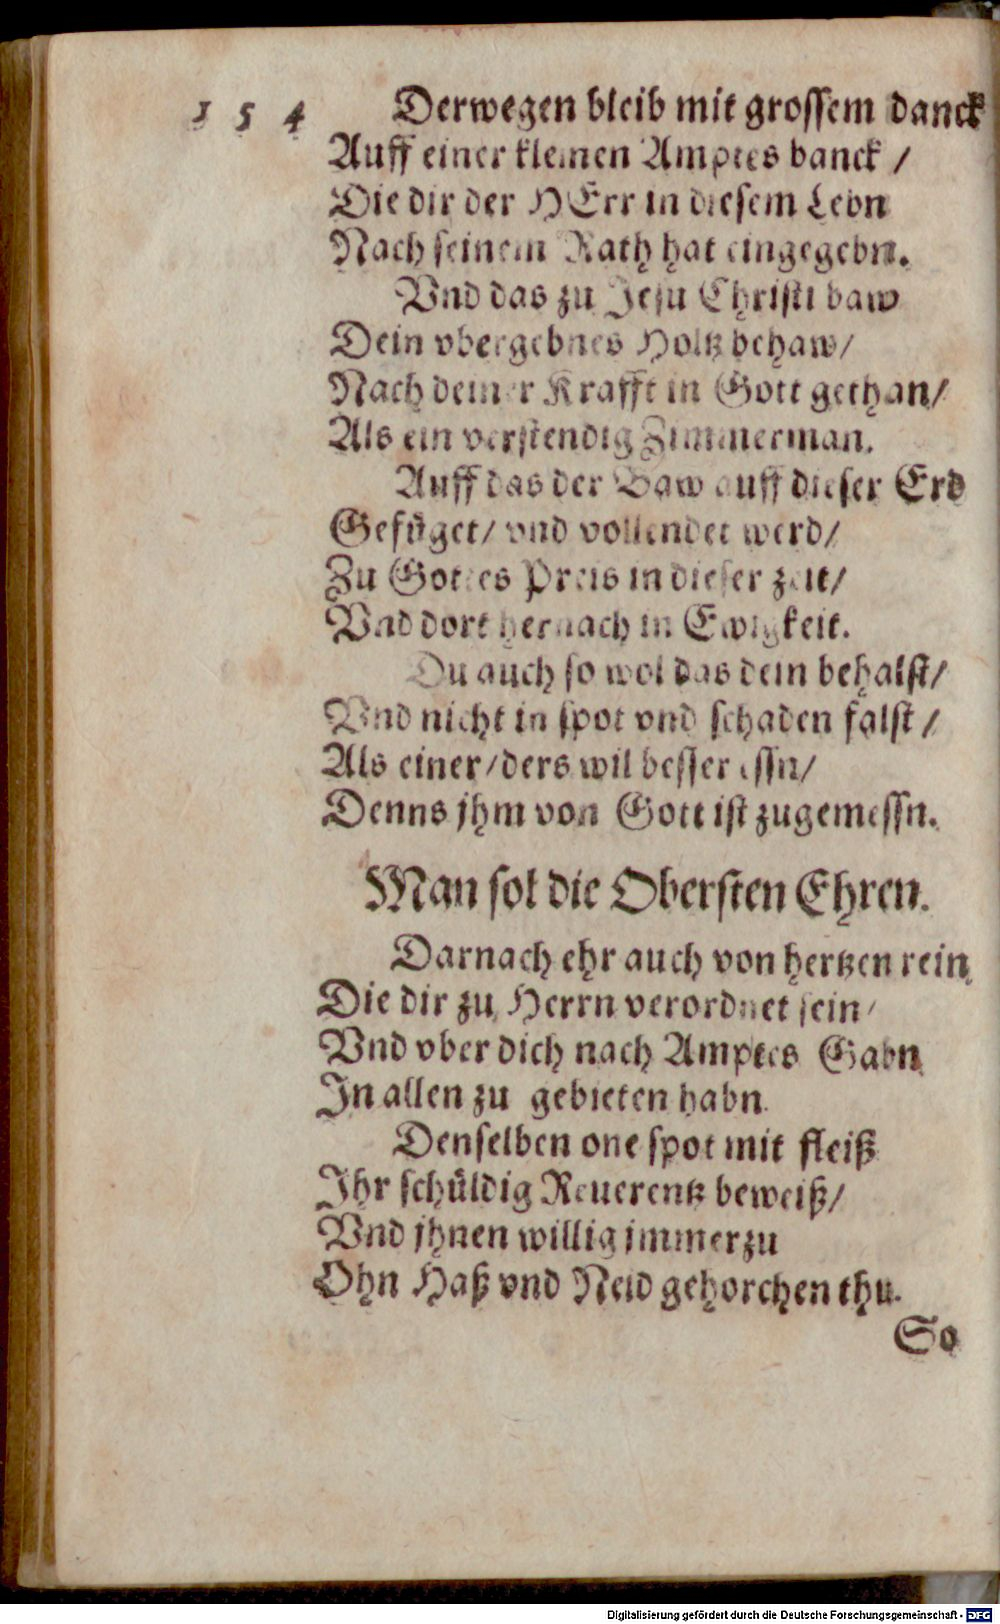 154
Derwegen bleib mit grossem danck
Auff einer kleinen Amptes banck /
Die dir der HErr in diesem Lebn
Nach seinem Rath hat eingegebn.
Vnd das zu Jesu Christi baw
Dein vbergebnes Holtz behaw/
Nach deiner Krafft in Gott gethan/
Als ein verstendig Zimmerman.
Auff das der Baw auff dieser Erd
Gefüget/ vnd vollendet werd/
Zu Gottes Preis in dieser zeit/
Vnd dort hernach in Ewigkeit.
Du auch so wol das dein behalst/
Vnd nicht in spot vnd schaden falst /
Als einer/ ders wil besser essn/
Denns jhm von Gott ist zugemessn.
Man sol die Obersten Ehren.
Darnach ehr auch von hertzen rein
Die dir zu Herrn verordnet sein/
Vnd vber dich nach Amptes Gabn
In allen zu gebieten habn.
Denselben one spot mit fleiß
Ihr schüldig Reuerentz beweiß/
Vnd jhnen willig jmmerzu
Ohn Haß vnd Neid gehorchen thu.
So
Digitalisierung gefördert durch die Deutsche Forschungsgemeinschaft - DFG